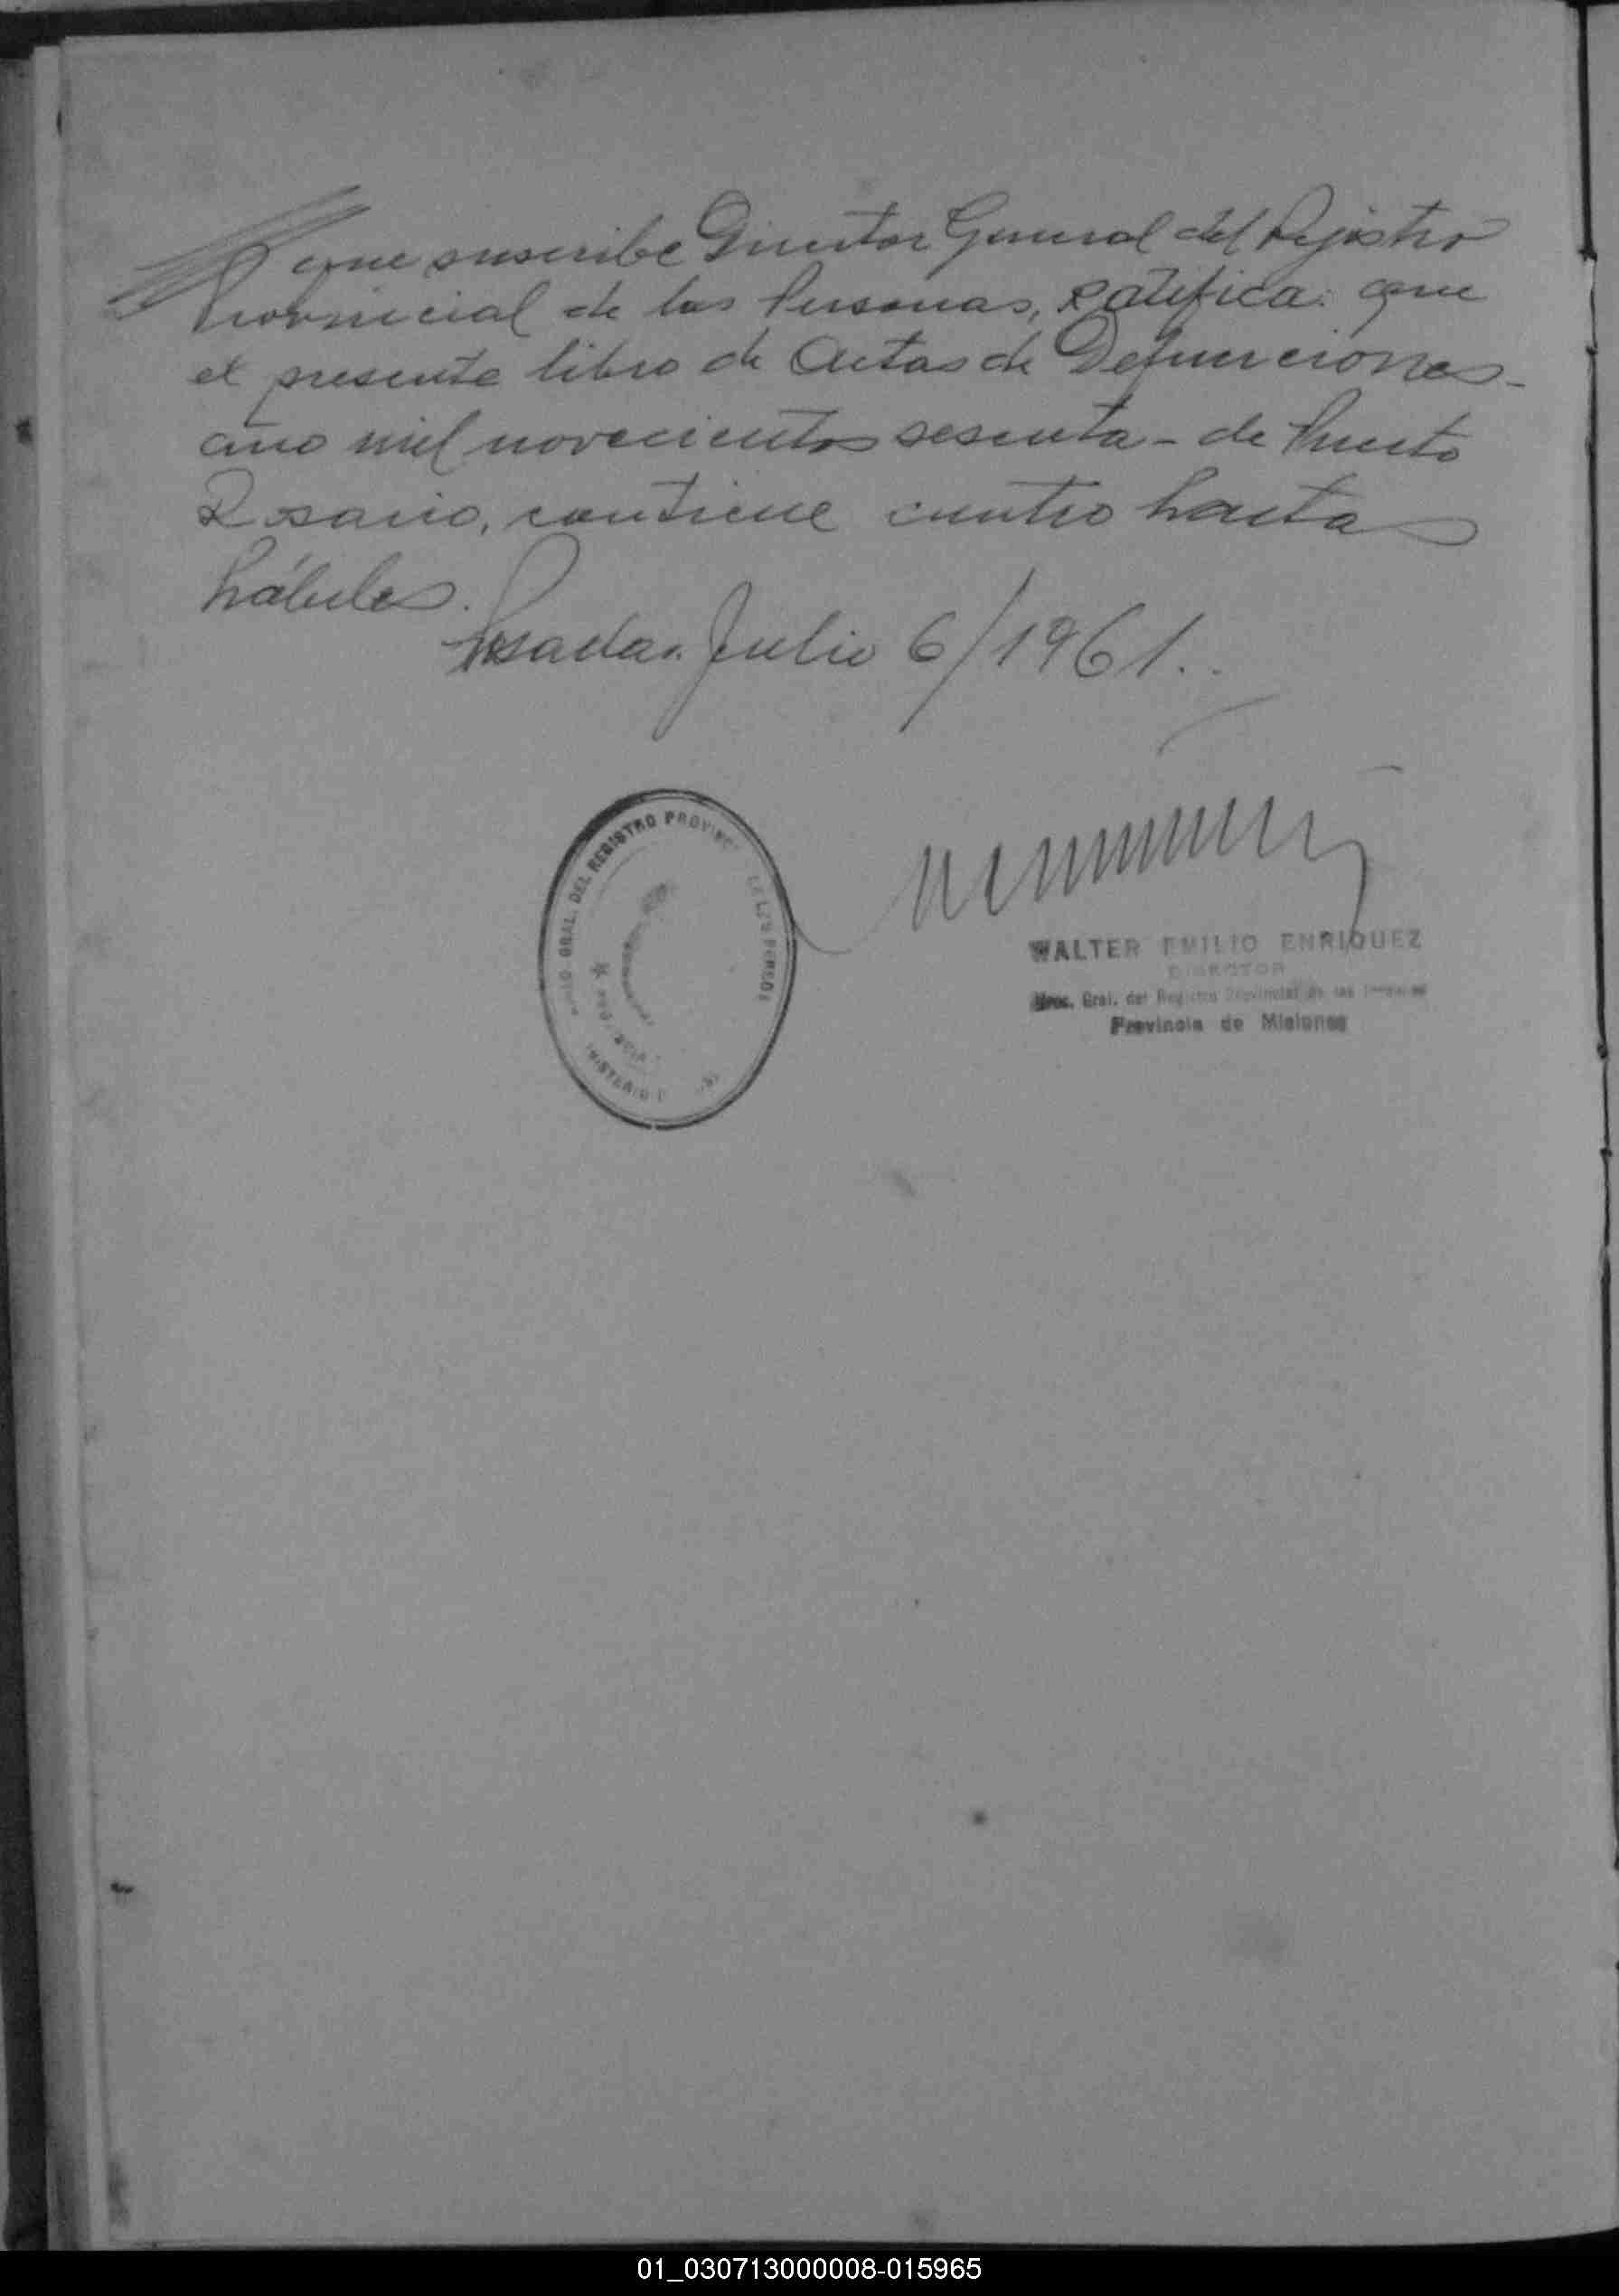 que suscribe Director General del Rejistro
Provincial de las Personas, Ratifica: que
el presente libro de Actas de Defunciones-
año mil novecientos sesenta - de Puerto
Rosario, contiene cuatro
hábiles.
Posadas. Julio 6/1961..
GRAL. DEL REGISTRO
WALTER EMILIO ENRIQUEZ
DIRECTOR
Gral. del Registro Provincial de las
Provincia de Misiones
01_030713000008-015965